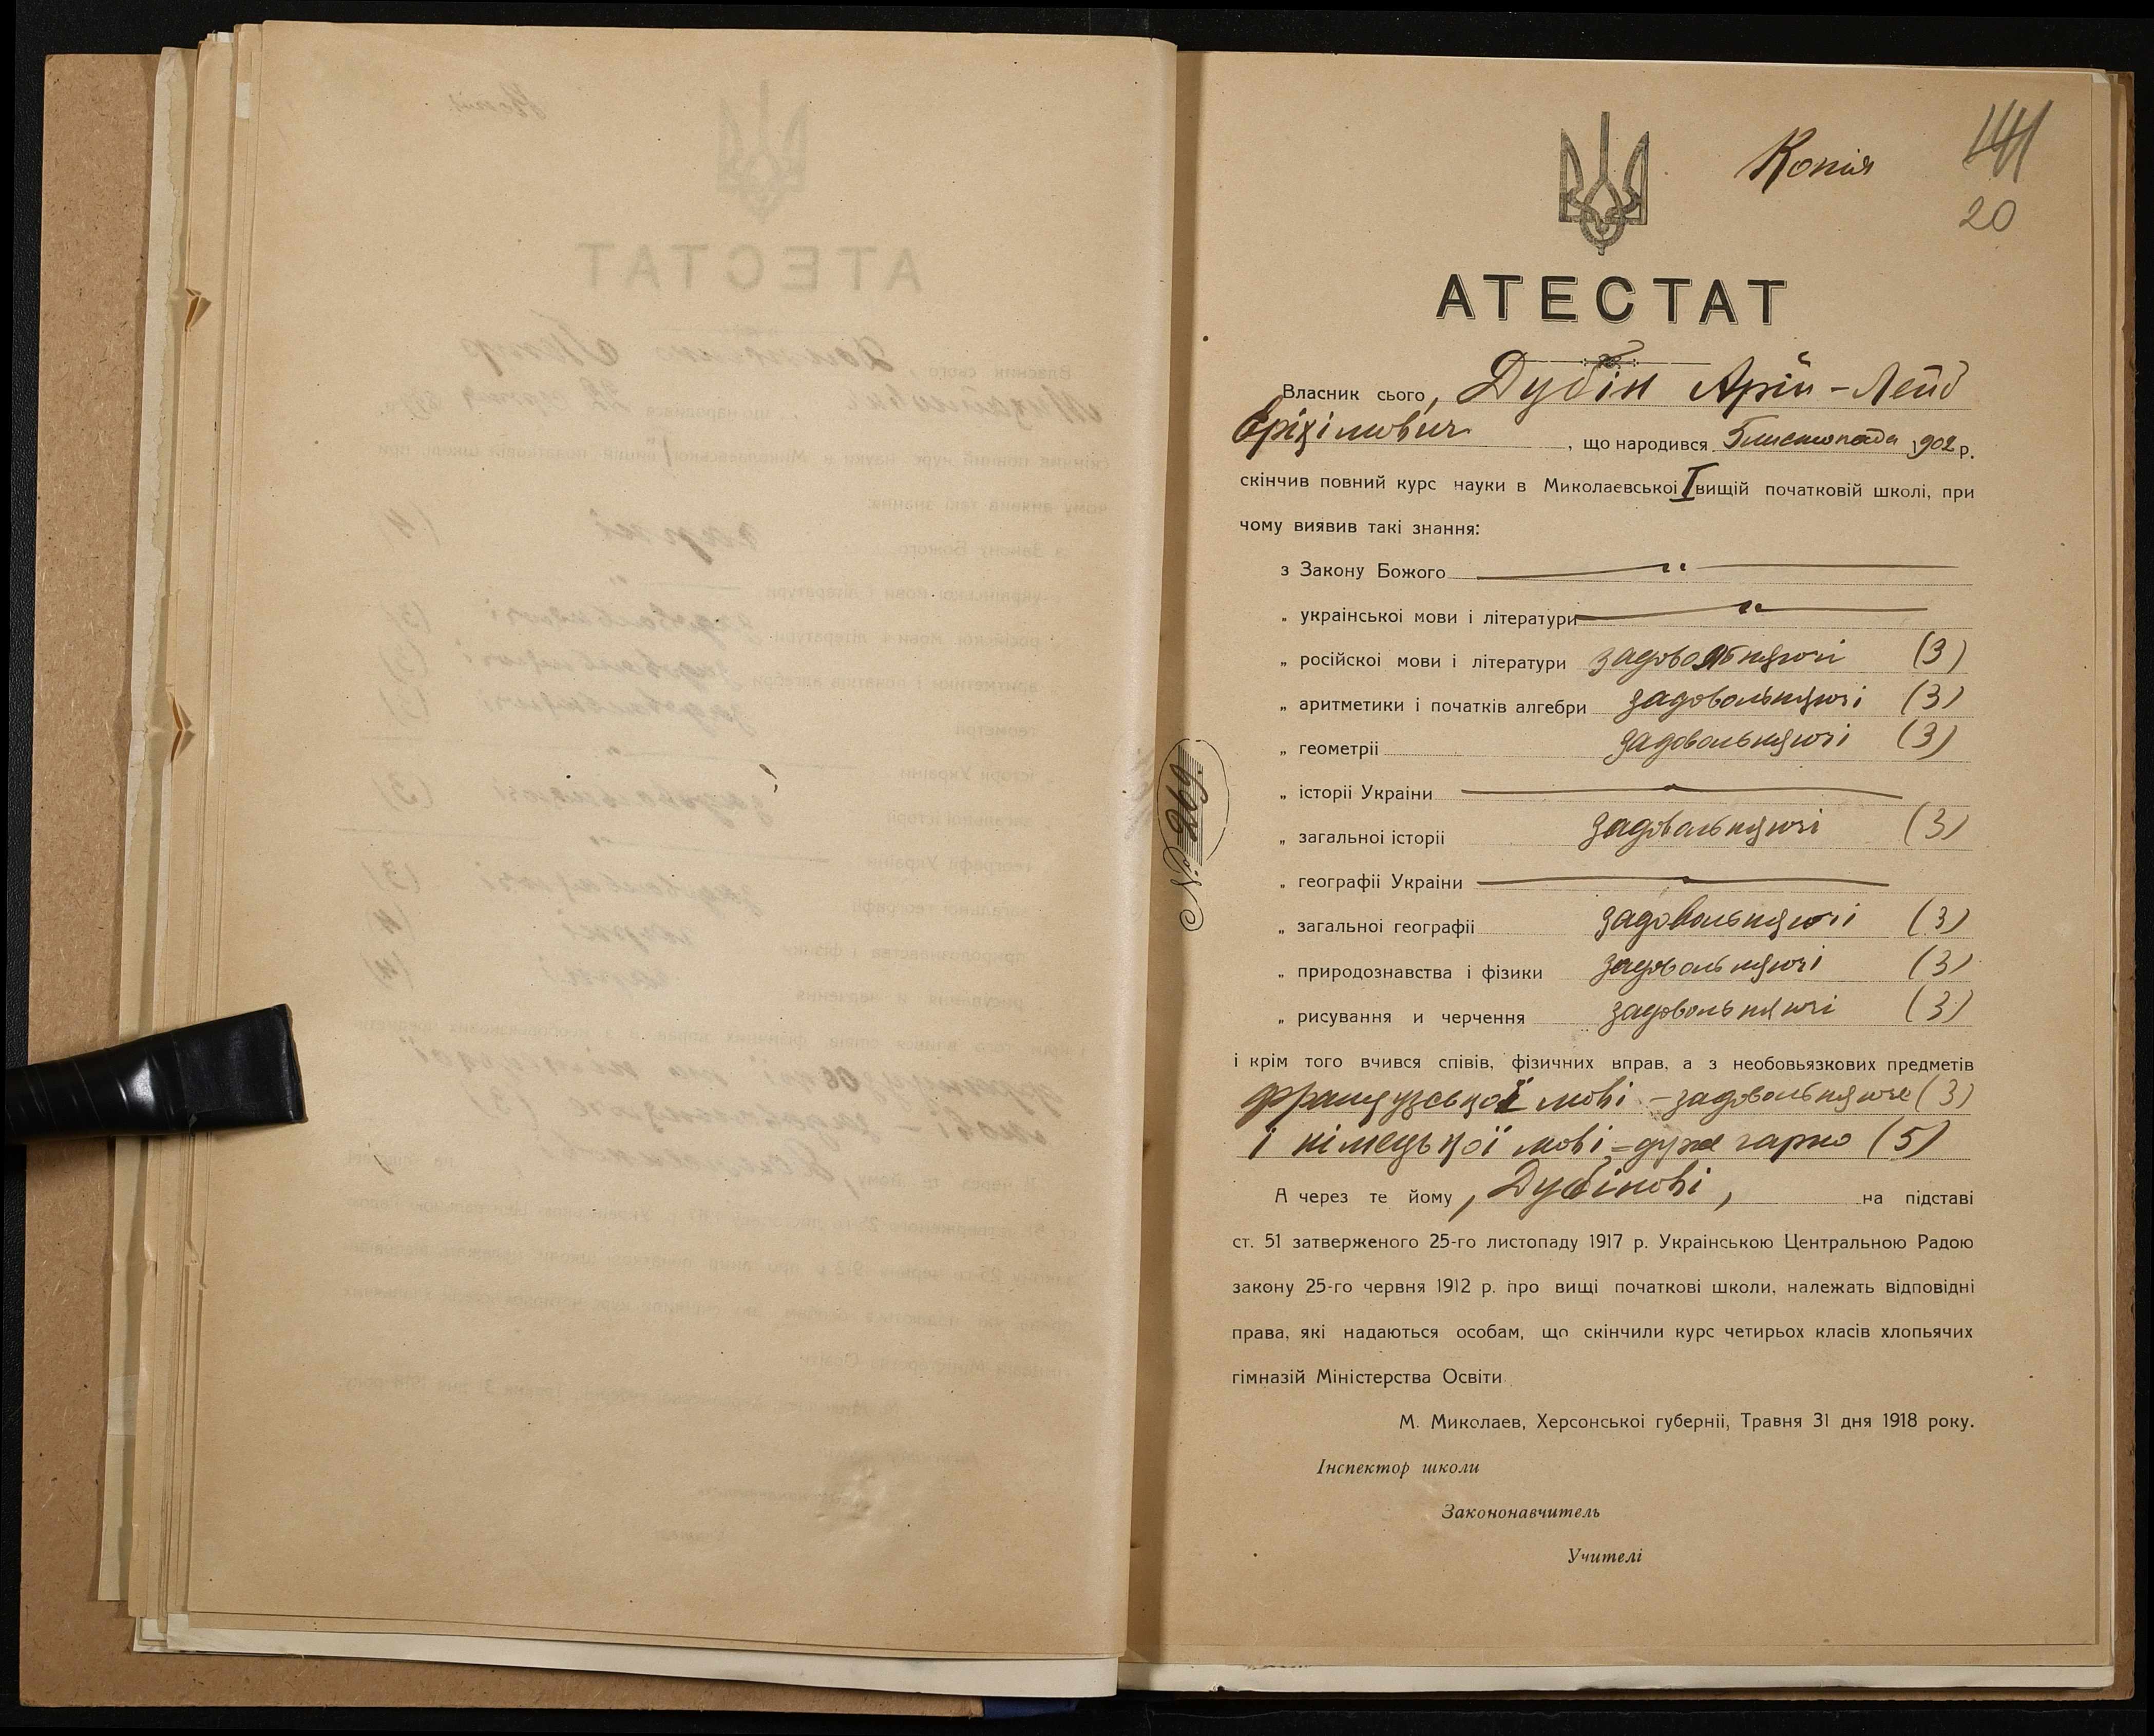 Копія
141
20
АТЕСТАТ
Власник сього, Дубін Арій-Лейб
що народився листопада 1902 р.
скінчив повний курс науки в Миколаевськоі I вищій початковій школі, при
чому виявив такі знання:
з Закону Божого — „ —
„ украінськоі мови і літератури — „ —
„ російскоі мови і літератури задовольняючі (3)
„ аритметики і початків алгебри задовольняючі (3)
„ геометріі задовольняючі (3)
„ історіі Украіни —
„ загальноі історіі задовольняючі (3)
„ географіі Украіни —
„ загальноі географіі задовольняючі (3)
„ природознавства і фізики задовольняючі (3)
„ рисування и черчення задовольняючі (3)
і крім того вчився співів, фізичних вправ, а з необовьязкових предметів
французської мові - задовольняюче (3)
і німецької мові - дуже гарно (5)
А через те йому, Дубінові, на підставі
ст. 51 затверженого 25-го листопаду 1917 р. Украінською Центральною Радою
закону 25-го червня 1912 р. про вищі початкові школи, належать відповідні
права, які надаються особам, що скінчили курс четирьох класів хлопьячих
гімназій Міністерства Освіти.
М. Миколаев, Херсонськоі губерніі, Травня 31 дня 1918 року.
Інспектор школи
Закононавчитель
Учителі
№ 269.